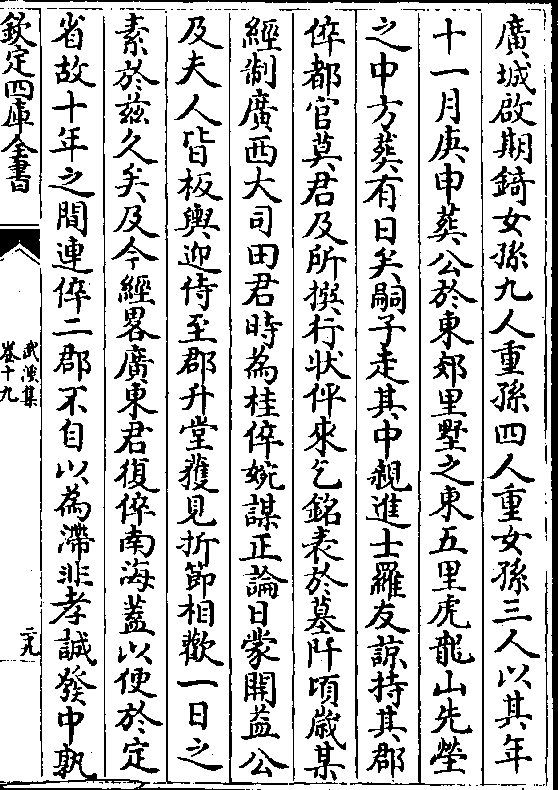 廣城啟期錡女孫九人重孫四人重女孫三人以其年
十一月庚申葬公於東郊里墅之東五里虎龍山先塋
之中方葬有日矣嗣子走其中親進士羅友諒持其郡
倅都官莫君及所撰行狀伻來乞銘表於墓阡頃歲某
經制廣西大司田君時為桂倅婉謀正論日蒙開益公
及夫人皆板輿迎侍至郡升堂獲見折節相歡一日之
素於兹久矣及今經畧廣東君復倅南海蓋以便於定
省故十年之間連倅二郡不自以為滯非孝誠發中孰
欽定四庫全書
武溪集
卷十九
二九